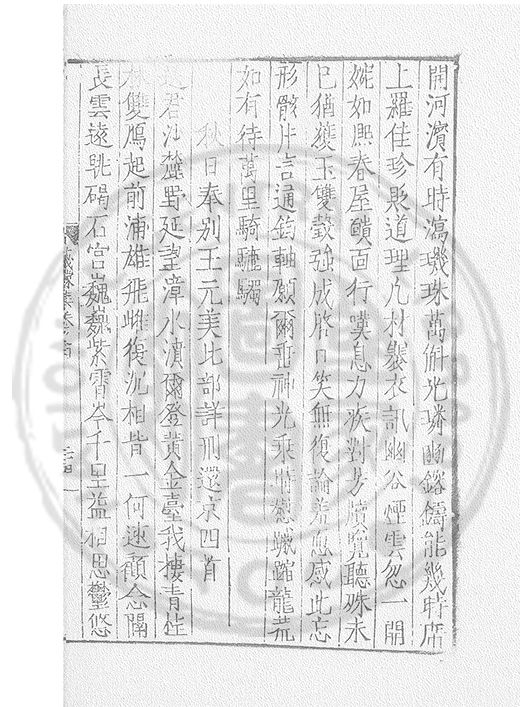 開河濱有時瀉璣珠萬斛光璘幽鎔鑄能幾時席
上羅佳珍敷道理凡材褧衣訊幽谷煙雲忽一開
婉如熙春屋靧面行嘆息力疾對芳牘覽聽殊未
已猶獲玉雙瑴強成啓口笑無復論羞惡感此忘
形骸片言通鈞軸願爾乖神光乘時想蹴踏龍荒
如有待萬里騎驌驦
秋日奉別王元美比部詳刑還京四首
君沙麓野延望漳水濱爾登黃金臺我棲青
林雙鴈起前浦雄飛雌復沉相背一何速顧念隔
長雲遠眺碣石宮巍巍紫霄岑千里益相思鬱悠